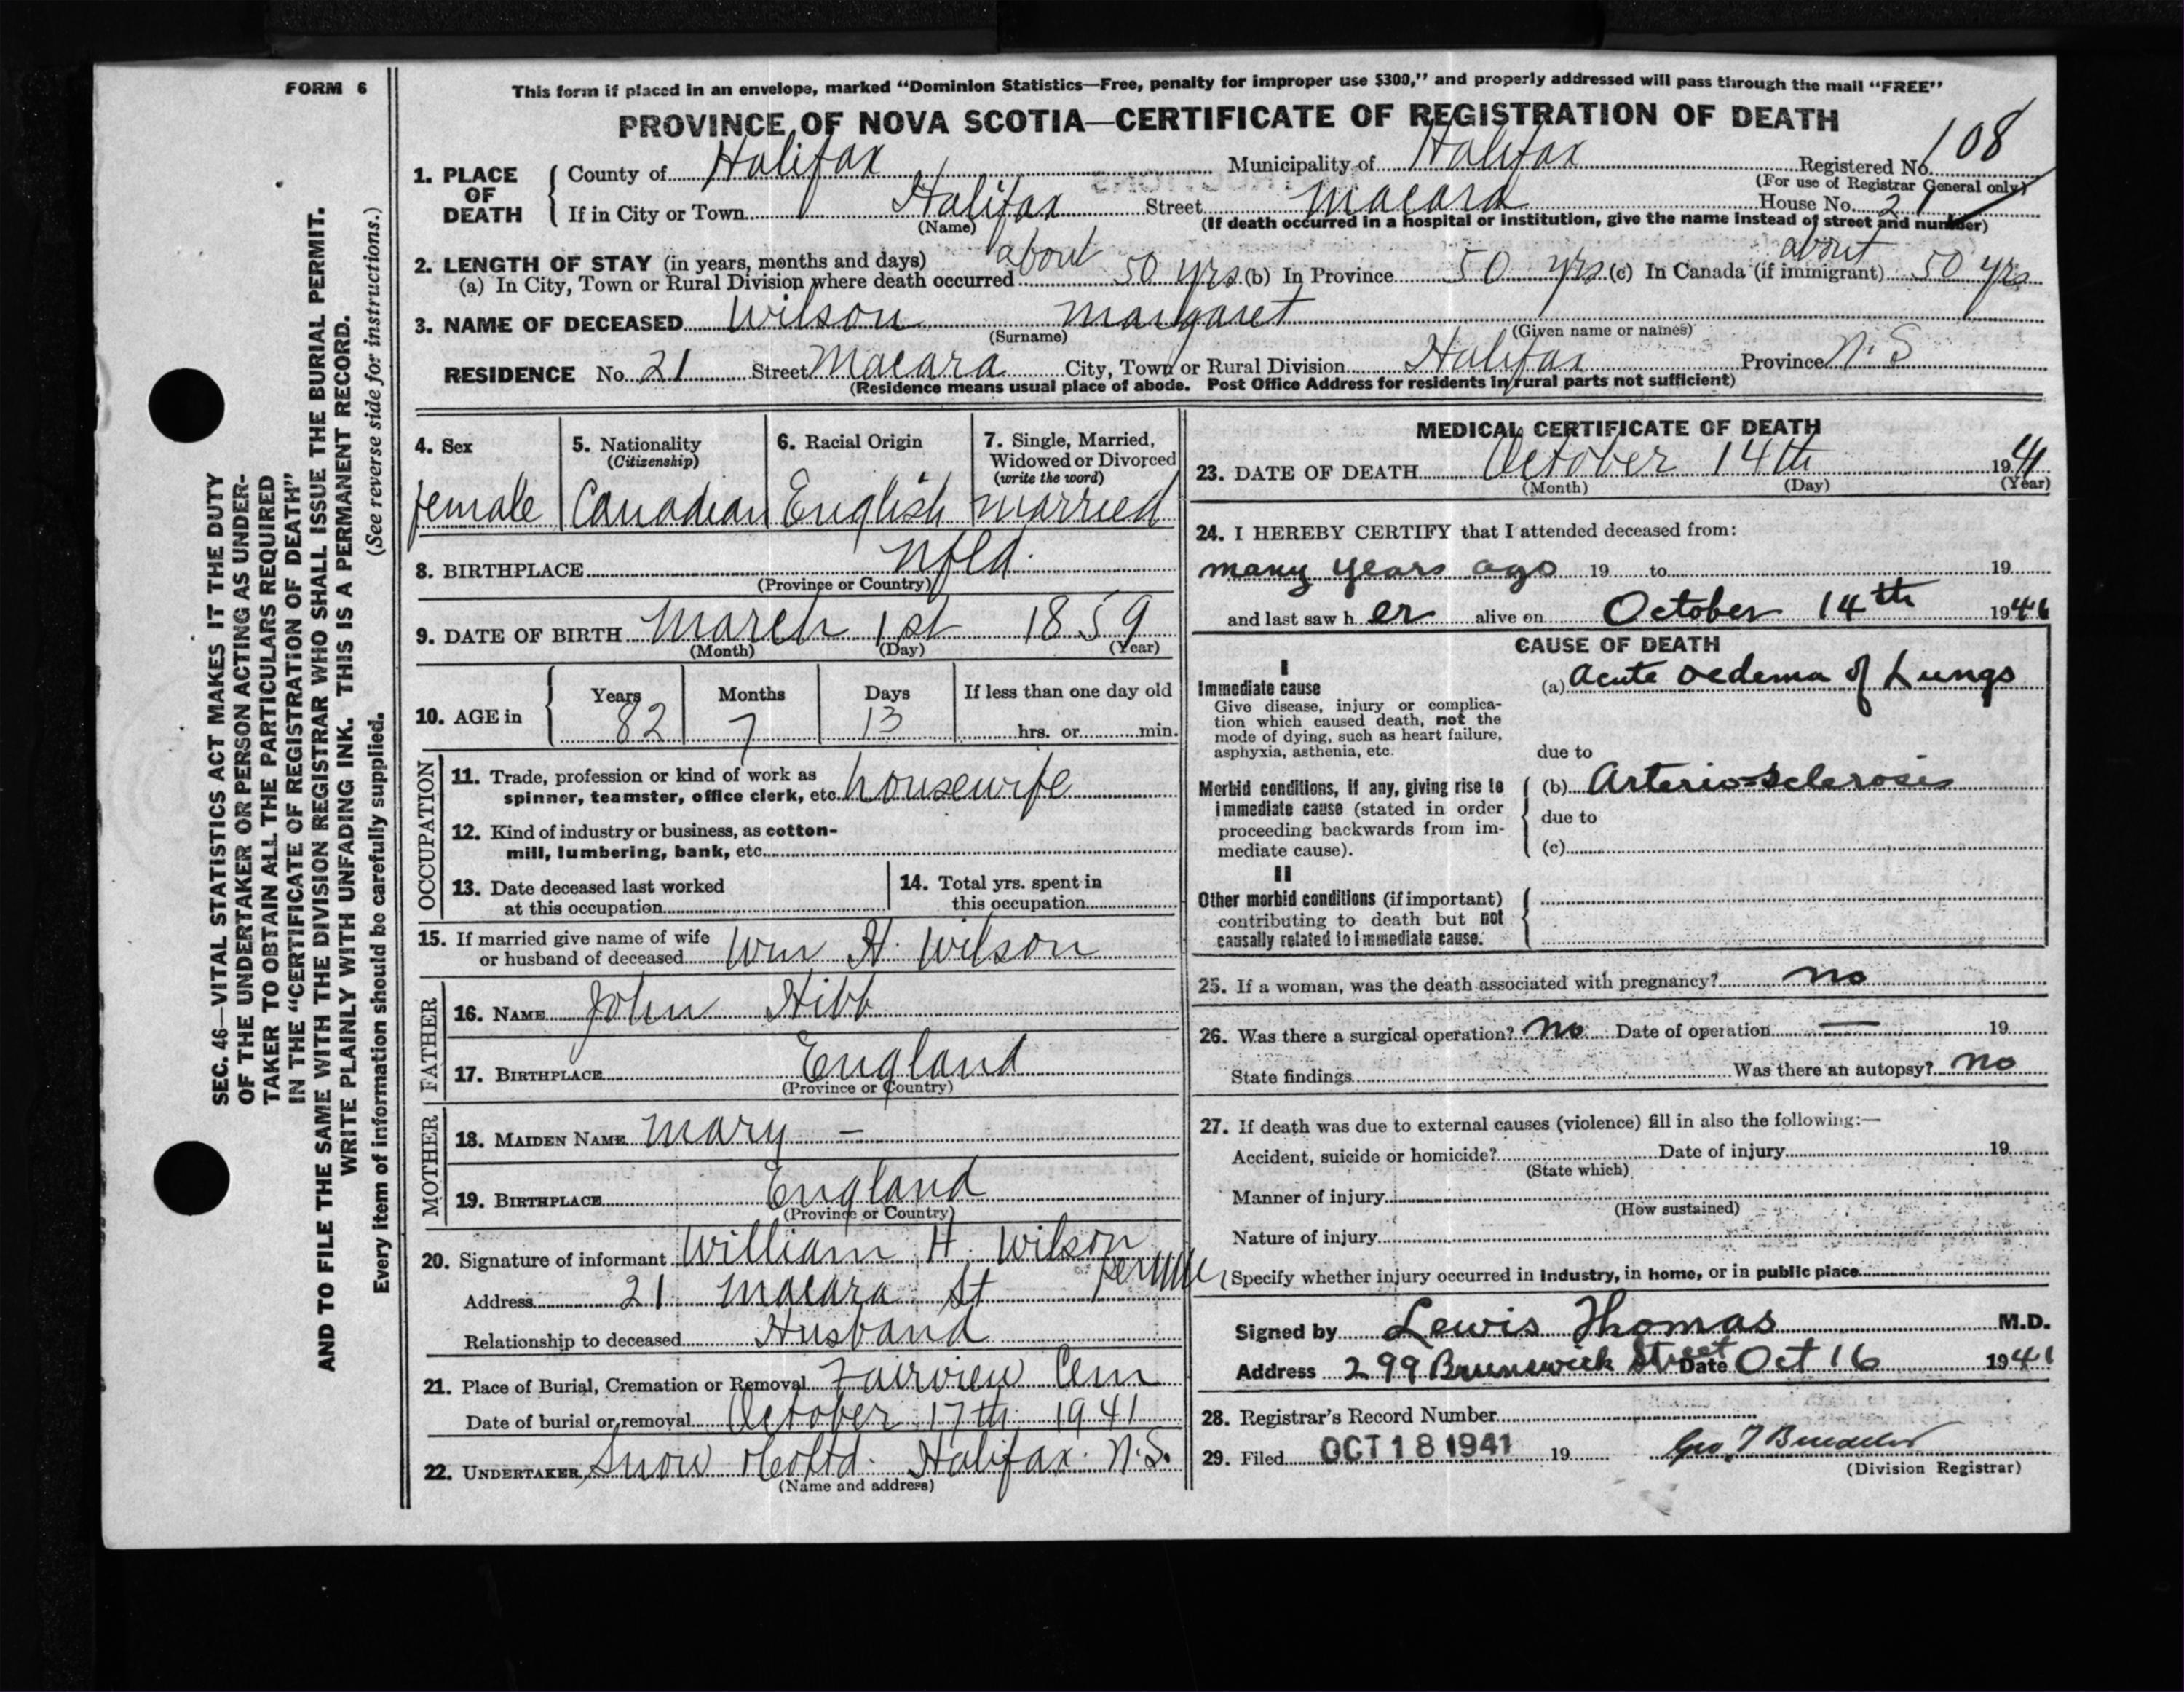 FORM 6
This form if placed in an envelope, marked "Dominion Statistics—Free, penalty for improper use $300," and properly addressed will pass through the mail "FREE"
PROVINCE OF NOVA SCOTIA—CERTIFICATE OF REGISTRATION OF DEATH
1. PLACE OF DEATH
County of Halifax Municipality of Halifax Registered No. 108
(For use of Registrar General only)
If in City or Town Halifax Street Macara House No. 21
(Name) (If death occurred in a hospital or institution, give the name instead of street and number)
2. LENGTH OF STAY (in years, months and days)
(a) In City, Town or Rural Division where death occurred about 50 yrs (b) In Province 50 yrs (c) In Canada (if immigrant) about 50 yrs
3. NAME OF DECEASED Wilson Margaret
(Surname) (Given name or names)
RESIDENCE No. 21 Street Macara City, Town or Rural Division Halifax Province N.S
(Residence means usual place of abode. Post Office Address for residents in rural parts not sufficient)
4. Sex
female
5. Nationality
(Citizenship)
Canadian
6. Racial Origin
English
7. Single, Married,
Widowed or Divorced
(write the word)
married
8. BIRTHPLACE Nfld.
(Province or Country)
9. DATE OF BIRTH March 1st 1859
(Month) (Day) (Year)
10. AGE in
Years Months Days If less than one day old
82 7 13 hrs. or min.
OCCUPATION
11. Trade, profession or kind of work as
spinner, teamster, office clerk, etc. housewife
12. Kind of industry or business, as cotton-
mill, lumbering, bank, etc.
13. Date deceased last worked
at this occupation
14. Total yrs. spent in
this occupation
15. If married give name of wife
or husband of deceased Wm H. Wilson
FATHER
16. NAME John Hibb
17. BIRTHPLACE England
(Province or Country)
MOTHER
18. MAIDEN NAME Mary —
19. BIRTHPLACE England
(Province or Country)
20. Signature of informant William H. Wilson
Address 21 Macara St
Relationship to deceased Husband
21. Place of Burial, Cremation or Removal Fairview Cem
Date of burial or removal October 17th 1941
22. UNDERTAKER Snow & Co Ltd. Halifax N.S.
(Name and address)
MEDICAL CERTIFICATE OF DEATH
23. DATE OF DEATH October 14th 1941
(Month) (Day) (Year)
24. I HEREBY CERTIFY that I attended deceased from:
many years ago 19 to 19
and last saw h er alive on October 14th 1941
CAUSE OF DEATH
I
Immediate cause
Give disease, injury or complica-
tion which caused death, not the
mode of dying, such as heart failure,
asphyxia, asthenia, etc.
(a) Acute oedema of Lungs
due to
Morbid conditions, if any, giving rise to
immediate cause (stated in order
proceeding backwards from im-
mediate cause).
(b) Arterio-sclerosis
due to
(c)
II
Other morbid conditions (if important)
contributing to death but not
causally related to immediate cause.
25. If a woman, was the death associated with pregnancy? no
26. Was there a surgical operation? no Date of operation — 19
State findings Was there an autopsy? no
27. If death was due to external causes (violence) fill in also the following:—
Accident, suicide or homicide? Date of injury 19
(State which)
Manner of injury
(How sustained)
Nature of injury
Specify whether injury occurred in industry, in home, or in public place
Signed by Lewis Thomas M.D.
Address 299 Brunswick Street Date Oct 16 1941
28. Registrar's Record Number
29. Filed OCT 18 1941 19
(Division Registrar)
SEC. 46—VITAL STATISTICS ACT MAKES IT THE DUTY
OF THE UNDERTAKER OR PERSON ACTING AS UNDER-
TAKER TO OBTAIN ALL THE PARTICULARS REQUIRED
IN THE "CERTIFICATE OF REGISTRATION OF DEATH"
AND TO FILE THE SAME WITH THE DIVISION REGISTRAR WHO SHALL ISSUE THE BURIAL PERMIT.
WRITE PLAINLY WITH UNFADING INK. THIS IS A PERMANENT RECORD.
Every item of information should be carefully supplied. (See reverse side for instructions.)